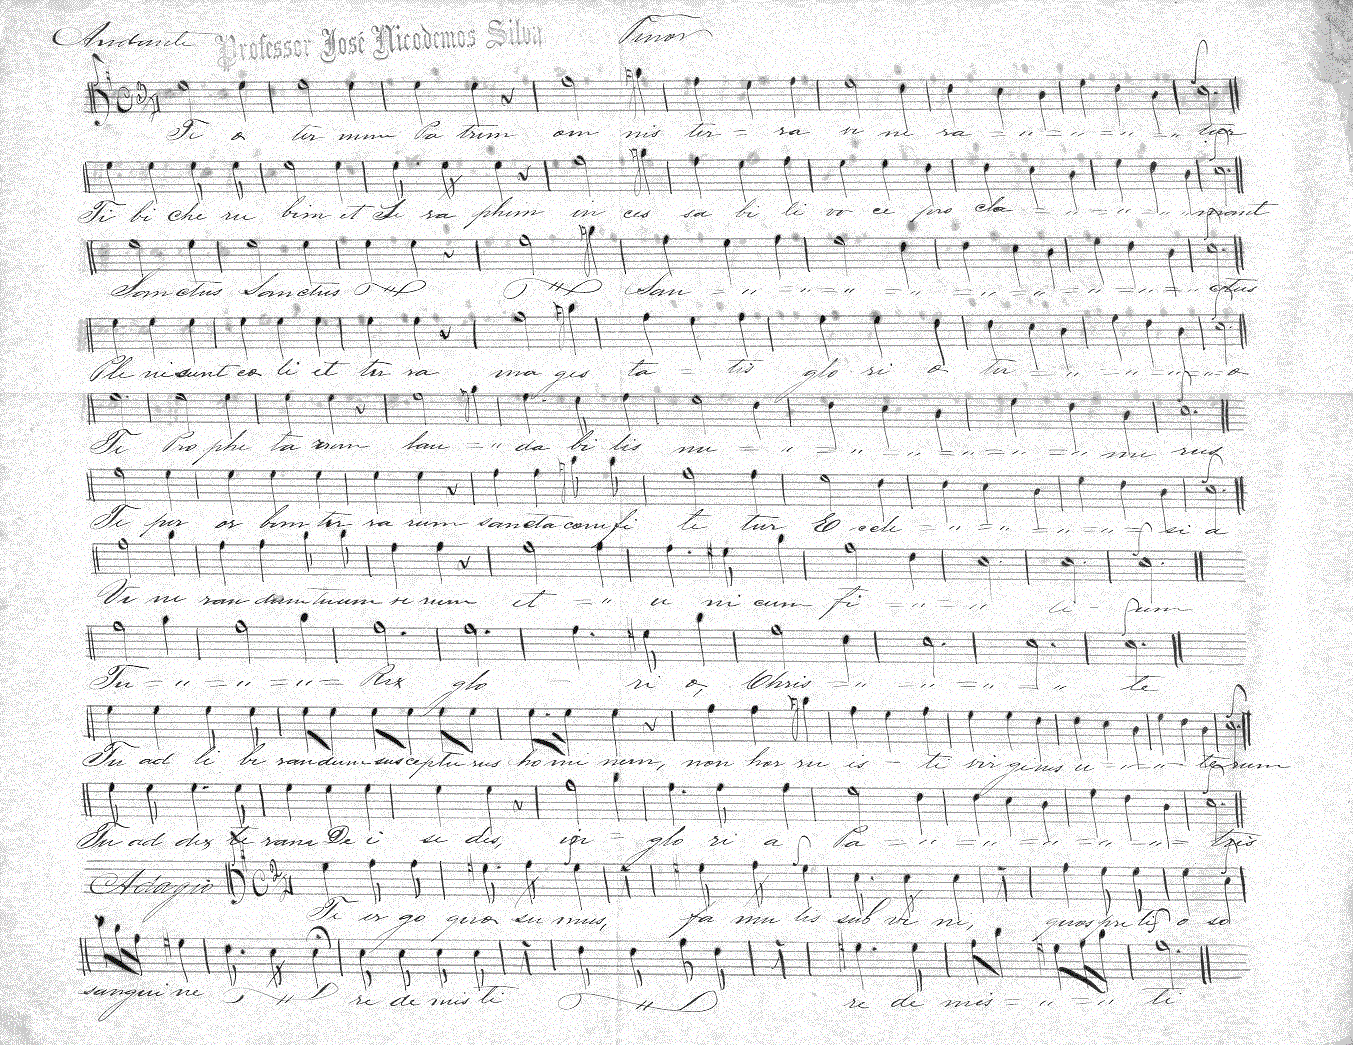 Andante Professor José Nicodemos Silva Tenor
Te a ter num Pa trem om nis ter = ra ve ne ra = " = " = " = " tur
Ti bi che ru bim et Se ra phim in ces sa bi li vo ce pro cla = " = " = " mant
Sanctus Sanctus San = " = " = " = " = " = " = " ctus
Ple ni sunt cœ li et ter ra ma ges ta = tis glo ri æ tu = " = " = " = æ
Te Pro phe ta rum lau = " da bi lis nu = " = " = " = " = " me rus
Te per or bem ter ra rum sancta confi te tur E ccle = " = " = " = " = si a
Ve ne ran dum tuum ve rum et = " u ni cum fi = " = " = " li - um
Tu = " = " = " = Rex glo ri æ, Chris = " = " = " = " te
Tu ad li be randum suscepturus ho mi nem, non hor ru is - ti virginis u = " = " = terum
Tu ad dex te ram De i se des, in = glo ri a Pa = " = " = " = " = tris
Adagio Te er go quæ su mus, fa mu lis sub ve ni, quos pre ti o so
sangui ne re de mis ti re de mis = " = " = ti